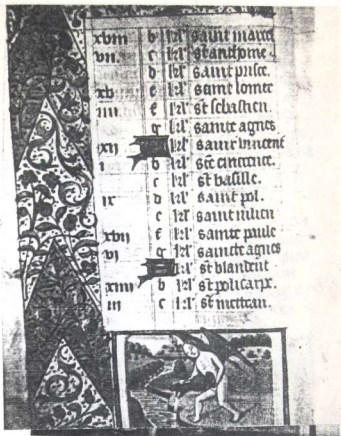 xviii b kl' saint marcel
vii c kl' st anthoine.
d kl' saint prisce.
xv e kl' saint lomer
iiii f kl' st sebastien.
g kl' sainte agnes
xii kl' saint vincent
i b kl'
c kl' st basille.
ix d kl' saint pol.
e kl' saint iulien
xvii f kl' sainte paule
vi g kl' saincte agnes
kl' st
xiiii b kl' st policarpe.
iii c kl' st